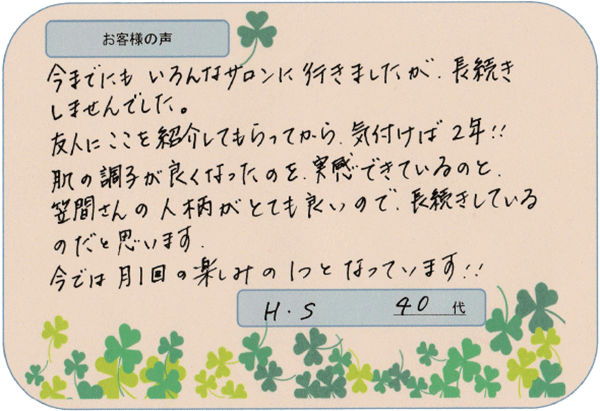 お客様の声
今までにも いろんなサロンに行きましたが、長続き
しませんでした。
友人にここを紹介してもらってから、気付けば2年!!
肌の調子が良くなったのを、実感できているのと、
笠間さんの人柄がとても良いので、長続きしている
のだと思います。
今では月1回の楽しみの1つとなっています!!
H.S 40代